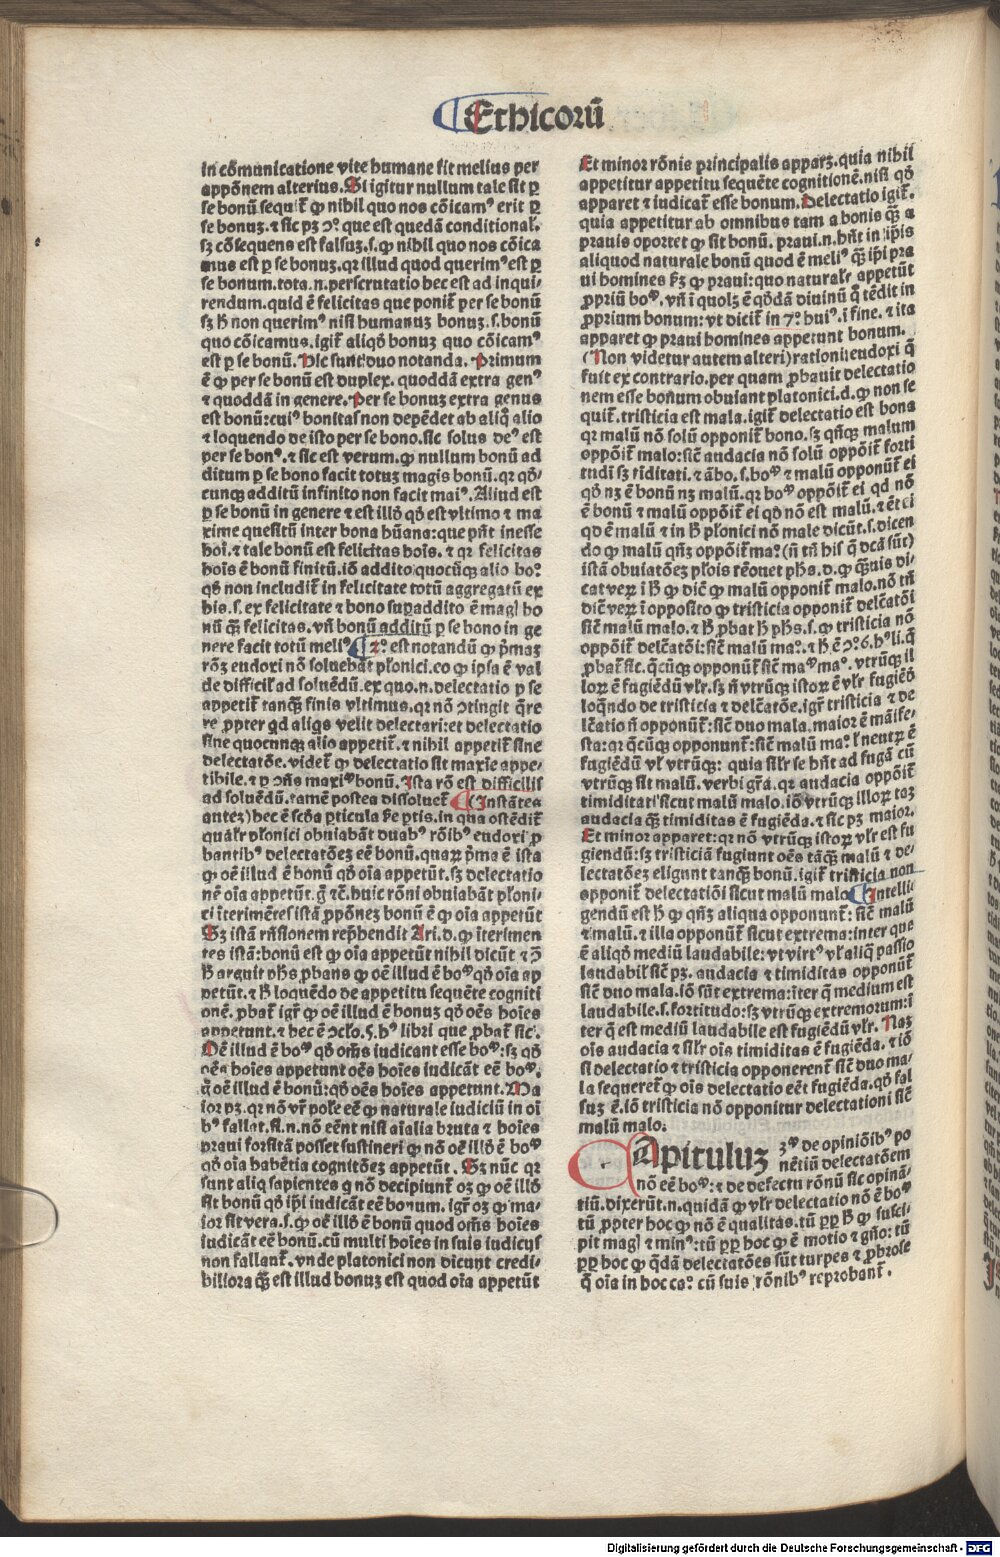 Ethicorū
in cōmunicatione vite humane sit melius per
appōnem alterius. Si igitur nullum tale sit ꝑ
se bonū sequit̄ ꝙ nihil quo nos cōicamꝰ erit ꝑ
se bonuꝫ. ⁊ sic pꝫ ↄ̄ꝰ que est quedā conditional̕.
sꝫ cōsequens est falsuꝫ. s. ꝙ nihil quo nos cōica
mus est ꝑ se bonuꝫ. qꝛ illud quod querimꝰ est ꝑ
se bonum. tota .n. perscrutatio hec est ad inqui-
rendum. quid ē felicitas que ponit̄ per se bonū
sꝫ ħ non querimꝰ nisi humanuꝫ bonuꝫ. s. bonū
quo cōicamus. igit̄ aliqđ bonuꝫ quo cōicamꝰ
est ꝑ se bonū. Hic sunt duo notanda. Primum
ē ꝙ per se bonū est duplex. quoddā extra genꝰ
⁊ quoddā in genere. Per se bonuꝫ extra genus
est bonū: cuiꝰ bonitas non depēdet ab aliq̄ alio
⁊ loquendo de isto per se bono. sic solus deꝰ est
per se bonꝰ. ⁊ sic est verum. ꝙ nullum bonū ad
ditum ꝑ se bono facit totuꝫ magis bonū. qꝛ qđ-
cunqꝫ additū infinito non facit maiꝰ. Aliud est
ꝑ se bonū in genere ⁊ est illđ qđ est vltimo ⁊ ma
xime quesitū inter bona hūana: que pn̄t inesse
hoī. ⁊ tale bonū est felicitas hoīs. ⁊ qꝛ felicitas
hoīs ē bonū finitū. iō addito quocūqꝫ alio boꝰ
qđ non includit̄ in felicitate totū aggregatū ex
his. s. ex felicitate ⁊ bono supaddito ē magꝭ bo
nū qꝫ felicitas. vn̄ bonū additū ꝑ se bono in ge
nere facit totū meliꝰ. 2ꝰ est notandū ꝙ p̄maꝫ
rōꝫ eudoxi nō soluebāt pl̄onici. eo ꝙ ipsa ē val
de difficil̕ ad soluēdū. ex quo .n. delectatio ꝑ se
appetit̄ tanqꝫ finis vltimus. qꝛ nō ↄtingit q̄re
re ꝓpter qd aliqs velit delectari: et delectatio
sine quocunqꝫ alio appetit̄. ⁊ nihil appetit̄ sine
delectatōe. videt̄ ꝙ delectatio sit maxīe appe-
tibile. ⁊ ꝑ ↄn̄s maxiꝰ bonū. Ista rō est difficilis
ad soluēdū. tamē postea dissoluet̄ (Instātes
anteꝫ) hec ē scđa ꝑticula h̄e ꝑtis. in qua ostēdit̄
qualr̄ pl̄onici obuiabāt duabꝰ rōibꝰ eudoxi ꝓ
bantibꝰ delectatōeꝫ eē bonū. quaꝝ p̄ma ē ista
ꝙ oē illud ē bonū qđ oīa appetūt. sꝫ delectatio
nē oīa appetūt. g̊ ⁊c̄. huic rōni obuiabāt pl̄oni-
ci īterimētes istā ꝓpōneꝫ bonū ē ꝙ oīa appetūt
Sꝫ istā rn̄sionem rep̄hendit Ari. d. ꝙ īterimen
tes istā: bonū est ꝙ oīa appetūt nihil dicūt ⁊ ↄ̄
ħ arguit ph̄s ꝓbans ꝙ oē illud ē boꝰ qđ oīa ap
petūt. ⁊ ħ loquēdo de appetitu sequēte cogniti
onē. ꝓbat̄ igr̄ ꝙ oē illud ē bonuꝫ qđ oēs hoīes
appetunt. ⁊ hec ē ↄclo. 5. hꝰ libri que ꝓbat̄ sic̄.
Oē illud ē boꝰ qđ om̄s iudicant esse boꝰ: sꝫ qđ
oēs hoīes appetunt oēs hoīes iudicāt eē boꝰ.
g̊ oē illud ē bonū: qđ oēs hoīes appetunt. Ma
ior pꝫ. qꝛ nō vr̄ posse eē ꝙ naturale iudiciū in oī
bꝰ fallat. si .n. nō eēnt nisi aīalia bruta ⁊ hoīes
praui forsitā posset sustineri ꝙ nō oē illđ ē boꝰ
qđ oīa habētia cognitōeꝫ appetūt. Sꝫ nūc qꝛ
sunt aliq̄ sapientes q̄ nō decipiunt̄ oꝫ ꝙ oē illđ
sit bonū qđ ipī iudicāt eē bonum. igr̄ oꝫ ꝙ ma-
ior sit vera. s. ꝙ oē illđ ē bonū quod om̄s hoīes
iudicāt eē bonū. cū multi hoīes in suis iudicijs
non fallant̄. vnde platonici non dicunt credi-
biliora qꝫ est illud bonuꝫ est quod oīa appetūt
Et minor rōnis principalis apparꝫ. quia nihil
appetitur appetitu sequēte cognitionē. nisi qđ
apparet ⁊ iudicat̄ esse bonum. Delectatio igit̄.
quia appetitur ab omnibus tam a bonis qꝫ a
prauis oportet ꝙ sit bonū. praui .n. hn̄t in ip̄is
aliquod naturale bonū quod ē meliꝰ qꝫ ipī pra
ui homines hꝫ ꝙ praui: quo naturale appetūt
ꝓpriū boꝰ. vn̄ ī quolꝫ ē qđdā diuinū q̄ tēdit in
ꝓprium bonum: vt dicit̄ in 7ꝰ huiꝰ. ī fine. ⁊ ita
apparet ꝙ praui homines appetunt bonum.
(Non videtur autem alteri) rationi eudoxi q̄
fuit ex contrario. per quam ꝓbauit delectatio
nem esse bonum obuiant platonici. d. ꝙ non se
quit̄. tristicia est mala. igit̄ delectatio est bona
qꝛ malū nō solū opponit̄ bono. sꝫ qn̄qꝫ malum
oppōit̄ malo: sic̄ audacia nō solū oppōit̄ forti
tudī sꝫ tīditati. ⁊ ābo. s. boꝰ ⁊ malū opponūt̄ ei
qđ nꝫ ē bonū nꝫ malū. qꝛ boꝰ oppōit̄ ei qđ nō
ē bonū ⁊ malū oppōit̄ ei qđ nō est malū. ⁊ ēt ei
qđ ē malū ⁊ in ħ pl̄onici nō male dicūt. s. dicen
do ꝙ malū qn̄ꝫ oppōit̄ maꝰ. (n̄ tn̄ his q̄ dc̄a sūt)
istā obuiatōeꝫ pl̄ois rēouet ph̄s. d. ꝙ qꝫuis di-
cat veꝝ ī ħ ꝙ dic̄ ꝙ malū opponit̄ malo. nō tn̄
dic̄ veꝝ ī opposito ꝙ tristicia opponit̄ delc̄atōi
sic̄ malū malo. ⁊ ħ ꝓbat ħ ph̄s. s. ꝙ tristicia nō
oppōit̄ delc̄atōi: sic̄ malū maꝰ. ⁊ ħ ē ↄꝰ. 6. hꝰ li. q̄
ꝓbat̄ sic. q̄cūqꝫ opponūt̄ sic̄ maꝰ maꝰ. vtrūqꝫ il
loꝝ ē fugiēdū vlr̄. sꝫ n̄ vtrūqꝫ istoꝝ ē vlr̄ fugiēd
loq̄ndo de tristicia ⁊ delc̄atōe. igr̄ tristicia ⁊ de
lc̄atio n̄ opponūt̄: sic̄ duo mala. maior ē māife-
sta: qꝛ q̄cūqꝫ opponunt̄: sic̄ malū maꝰ. l̄ neutꝝ ē
fugiēdū vl̄ vtrūqꝫ: quia silr̄ se hn̄t ad fugā cū
vtrūqꝫ sit malū. verbi gr̄a. qꝛ audacia oppōit̄
timiditati sicut malū malo. iō vtrūqꝫ illoꝝ taꝫ
audacia qꝫ timiditas ē fugiēda. ⁊ sic pꝫ maior.
Et minor apparet: qꝛ nō vtrūqꝫ istoꝝ vlr̄ est fu
giendū: sꝫ tristiciā fugiunt oēs tāqꝫ malū ⁊ de-
lectatōeꝫ eligunt tanqꝫ bonū. igit̄ tristicia non
opponit̄ delectatiōi sicut malū malo (Intelli
gendū est ħ ꝙ qn̄ꝫ aliqua opponunt̄: sic̄ malū
⁊ malū. ⁊ illa opponūt̄ sicut extrema: inter que
ē aliqđ mediū laudabile: vt virtꝰ vl̄ aliq̄ passio
laudabil̕ sic̄ pꝫ. audacia ⁊ timiditas opponūt̄
sic̄ duo mala. iō sūt extrema: īter q̄ medium est
laudabile. s. fortitudo: sꝫ vtrūqꝫ extremorum: ī
ter q̄ est mediū laudabile est fugiēdū vlr̄. Naꝫ
oīs audacia ⁊ silr̄ oīs timiditas ē fugiēda. ⁊ iō
si delectatio ⁊ tristicia opponerent̄ sic̄ duo ma-
la sequeret̄ ꝙ oīs delectatio eēt fugiēda. qđ fal
suꝫ ē. iō tristicia nō opponitur delectationi sic̄
malū malo.
Apituluꝫ 3ꝰ de opiniōibꝰ po
nētiū delectatōem
nō eē boꝰ: ⁊ de defectu rōnū sic opinā-
tiū. dixerūt .n. quidā ꝙ vlr̄ delectatio nō ē boꝰ
tū ꝓpter hoc ꝙ nō ē qualitas. tū ꝓꝑ ħ ꝙ susci-
pit magꝭ ⁊ minꝰ: tū ꝓꝑ hoc ꝙ ē motio ⁊ gn̄o: tū
ꝓꝑ hoc ꝙ q̄dā delectatōes sūt turpes ⁊ ꝓbrose
q̄ oīa in hoc caꝰ. cū suis rōnibꝰ reprobant̄.
Digitalisierung gefördert durch die Deutsche Forschungsgemeinschaft - DFG